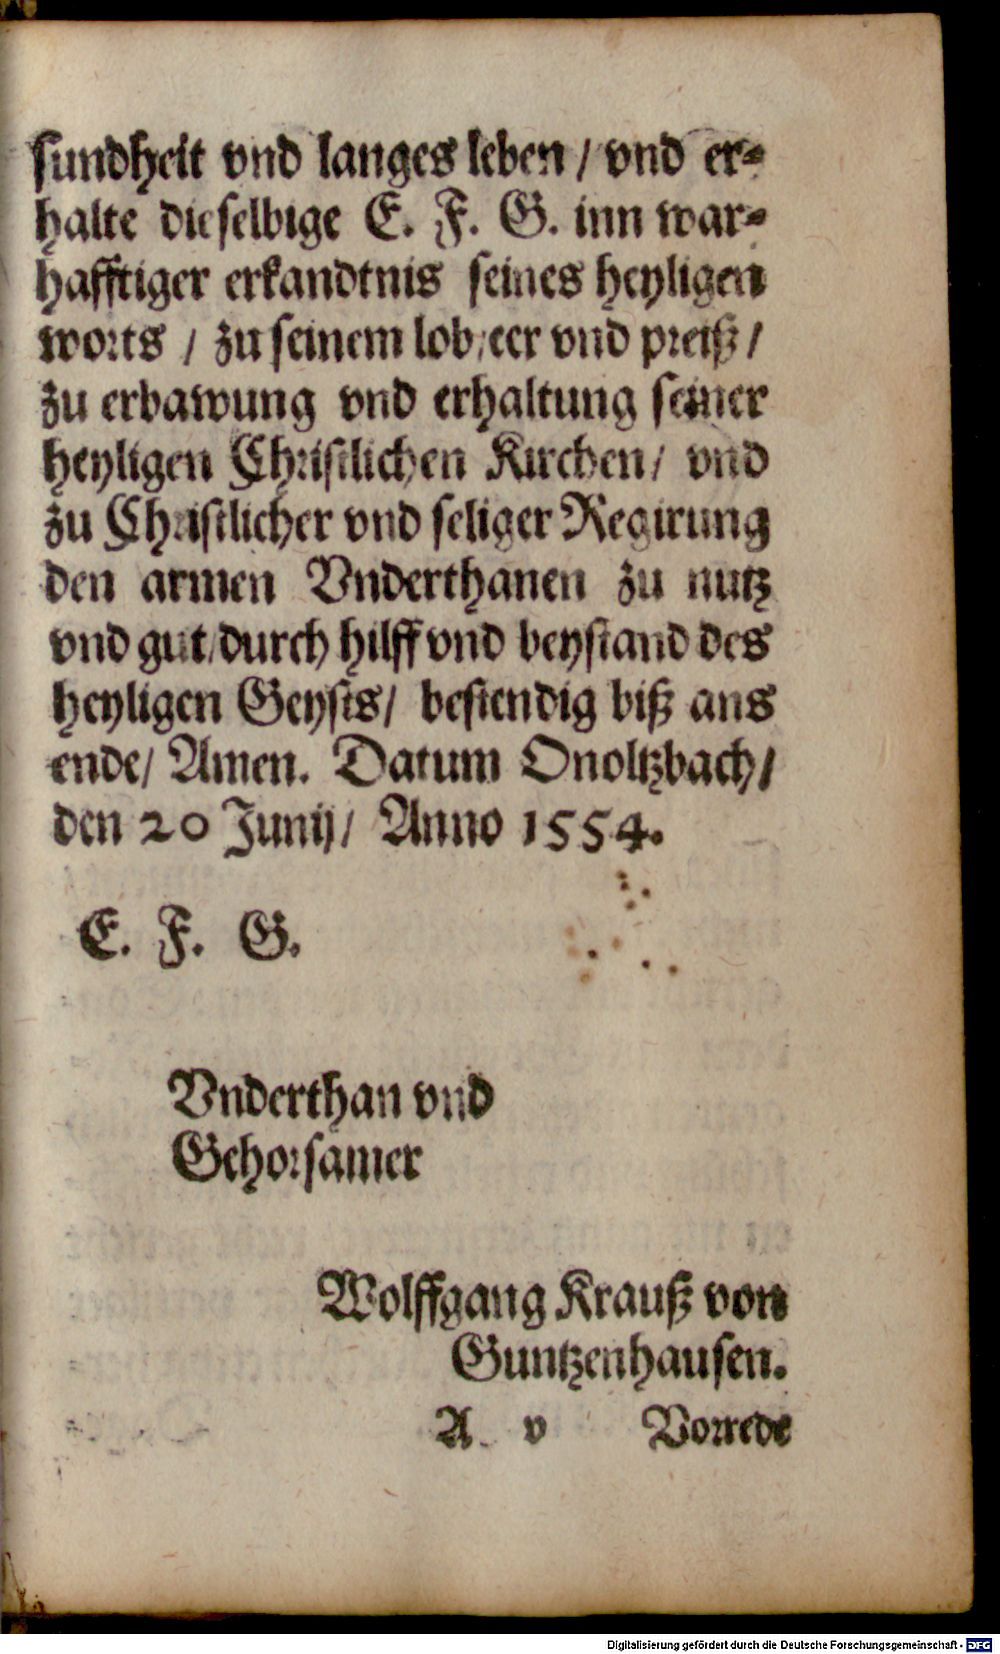 sundheit vnd langes leben / vnd er-
halte dieselbige E. F. G. inn war-
hafftiger erkandtnis seines heyligen
worts / zu seinem lob / eer vnd preiß /
zu erbawung vnd erhaltung seiner
heyligen Christlichen Kirchen / vnd
zu Christlicher vnd seliger Regirung
den armen Vnderthanen zu nutz
vnd gut / durch hilff vnd beystand des
heyligen Geysts / bestendig biß ans
ende / Amen. Datum Onoltzbach /
den 20 Junij / Anno 1554.
E. F. G.
Vnderthan vnd
Gehorsamer
Wolffgang Krauß von
Guntzenhausen.
A v Vorrede
Digitalisierung gefördert durch die Deutsche Forschungsgemeinschaft - DFG